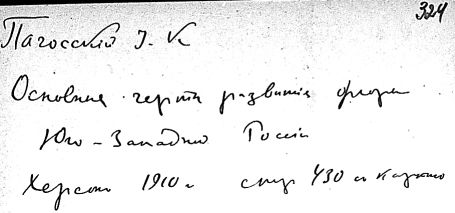 324
Пачосский І. К
Основныя черты развитія флоры
Юго-Западной Россіи
Херсон 1910 г стр 430 и карта